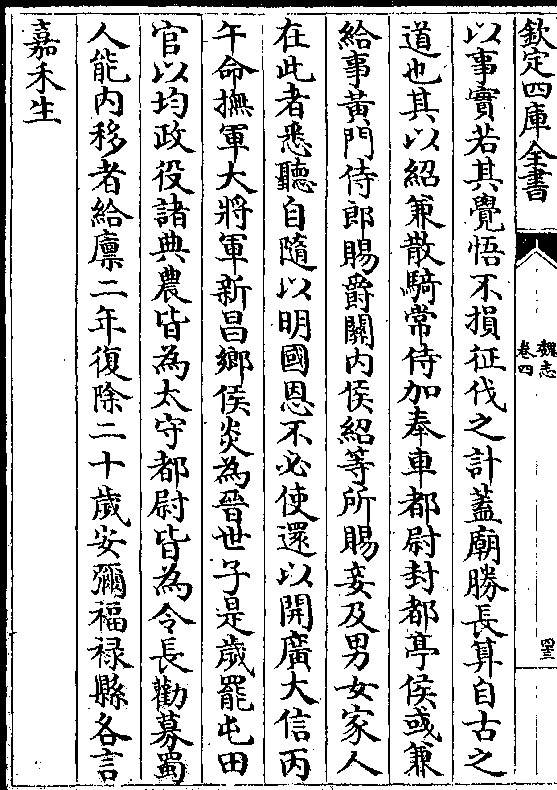 欽定四庫全書
魏志
卷四
四三
以事實若其覺悟不損征伐之計蓋廟勝長算自古之
道也其以紹兼散騎常侍加奉車都尉封都亭侯或兼
給事黃門侍郎賜爵關內侯紹等所賜妾及男女家人
在此者悉聽自隨以明國恩不必使還以開廣大信丙
午命撫軍大將軍新昌鄉侯炎為晉世子是歲罷屯田
官以均政役諸典農皆為太守都尉皆為令長勸募蜀
人能內移者給廪二年復除二十歲安彌福祿縣各言
嘉禾生